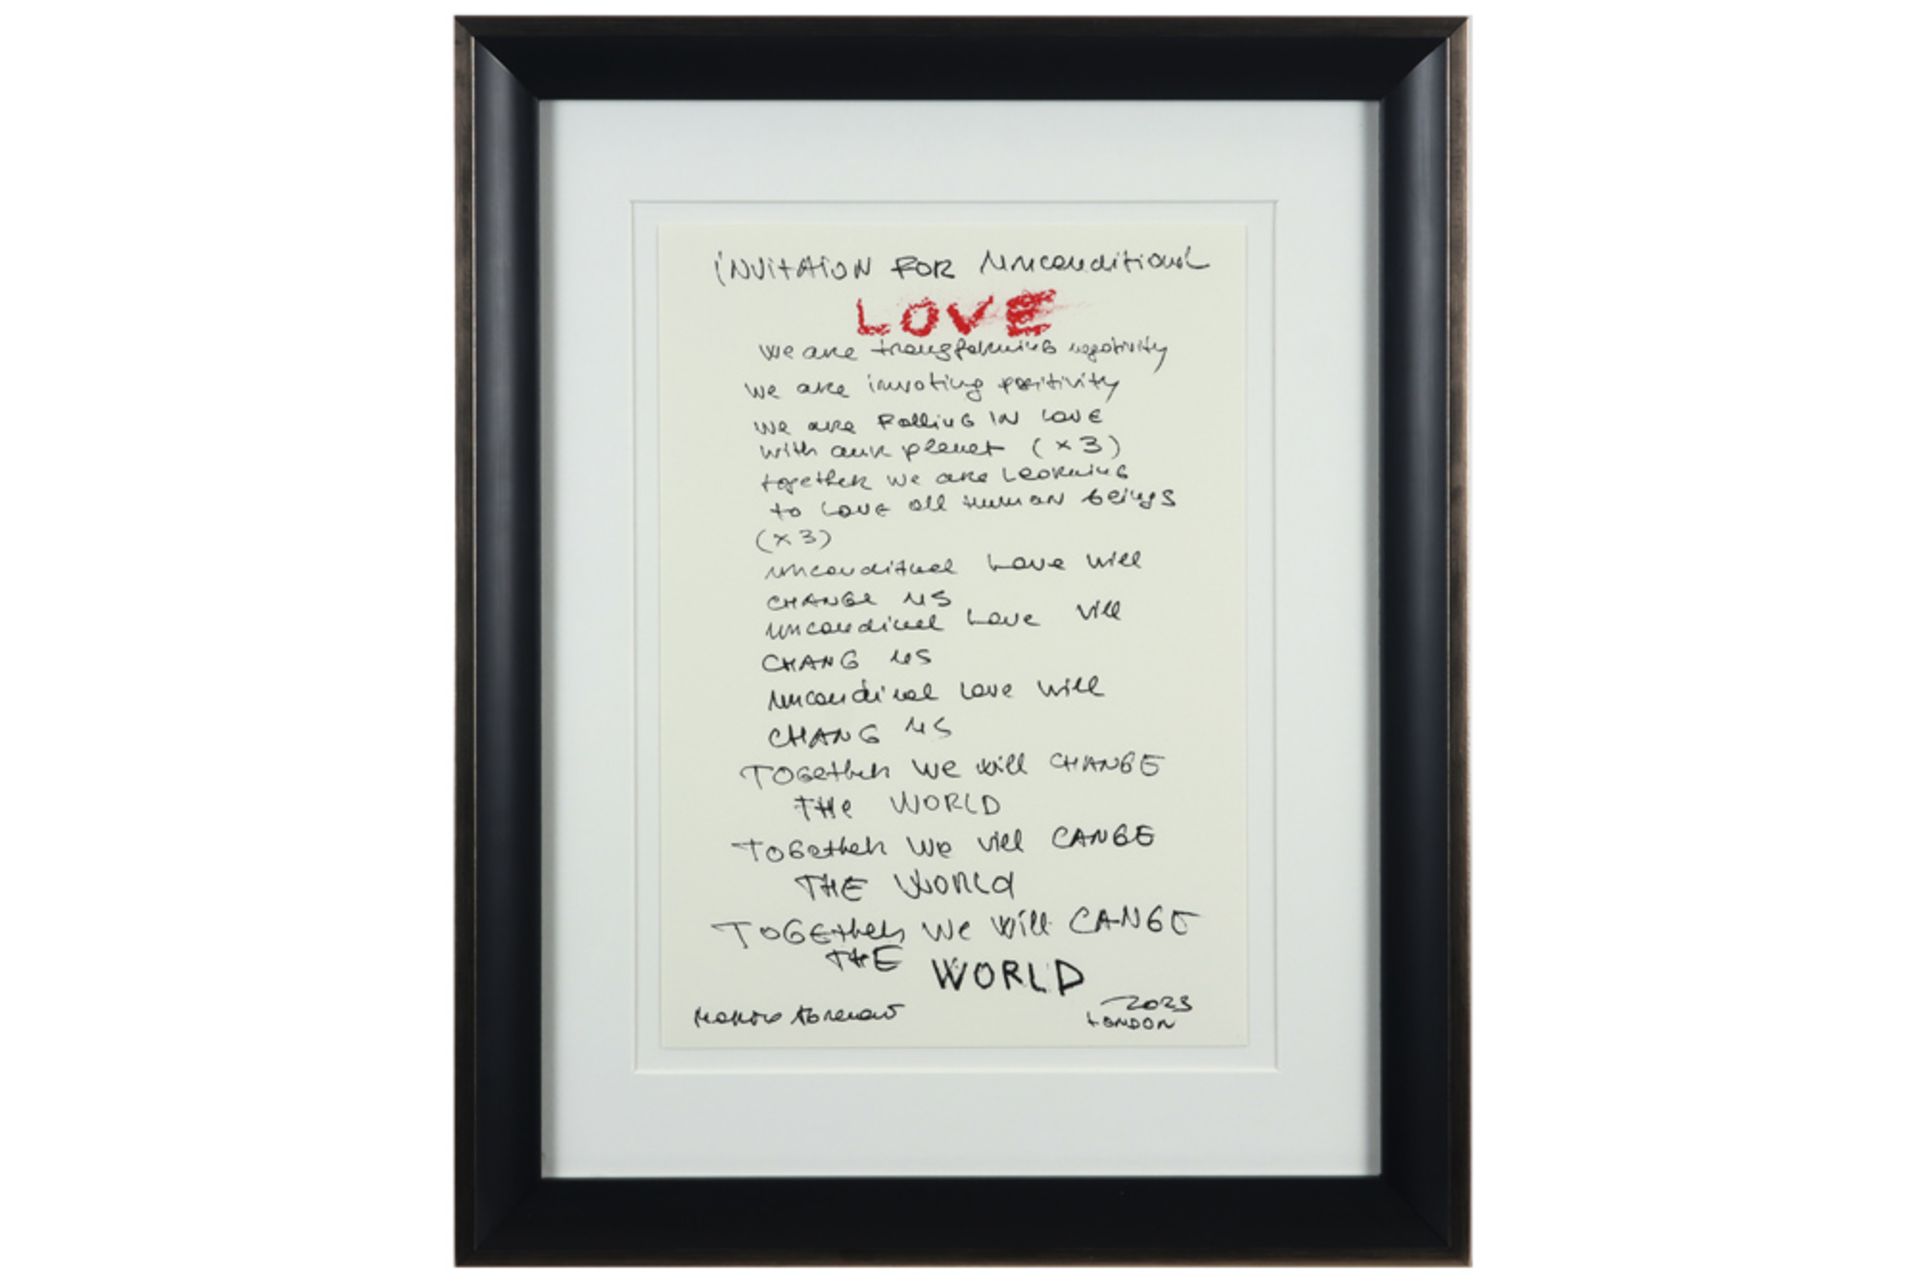 iNVitAiON FOR Unconditional
LOVE
We are transforming negativity
We are invoting positivity
We are Falling IN LOVE
with our planet (x3)
together we are Learning
to LOVE all Human beings
(x3)
unconditunal Love will
CHANGE US
uncondinal Love vill
CHANG US
uncondinal Love will
CHANG US
TOGether We will CHANGE
THe WORLD
TOGether We vill CANGE
THE WORLd
TOGEther We Will CANGE
THE WORLD
2023
LONDON